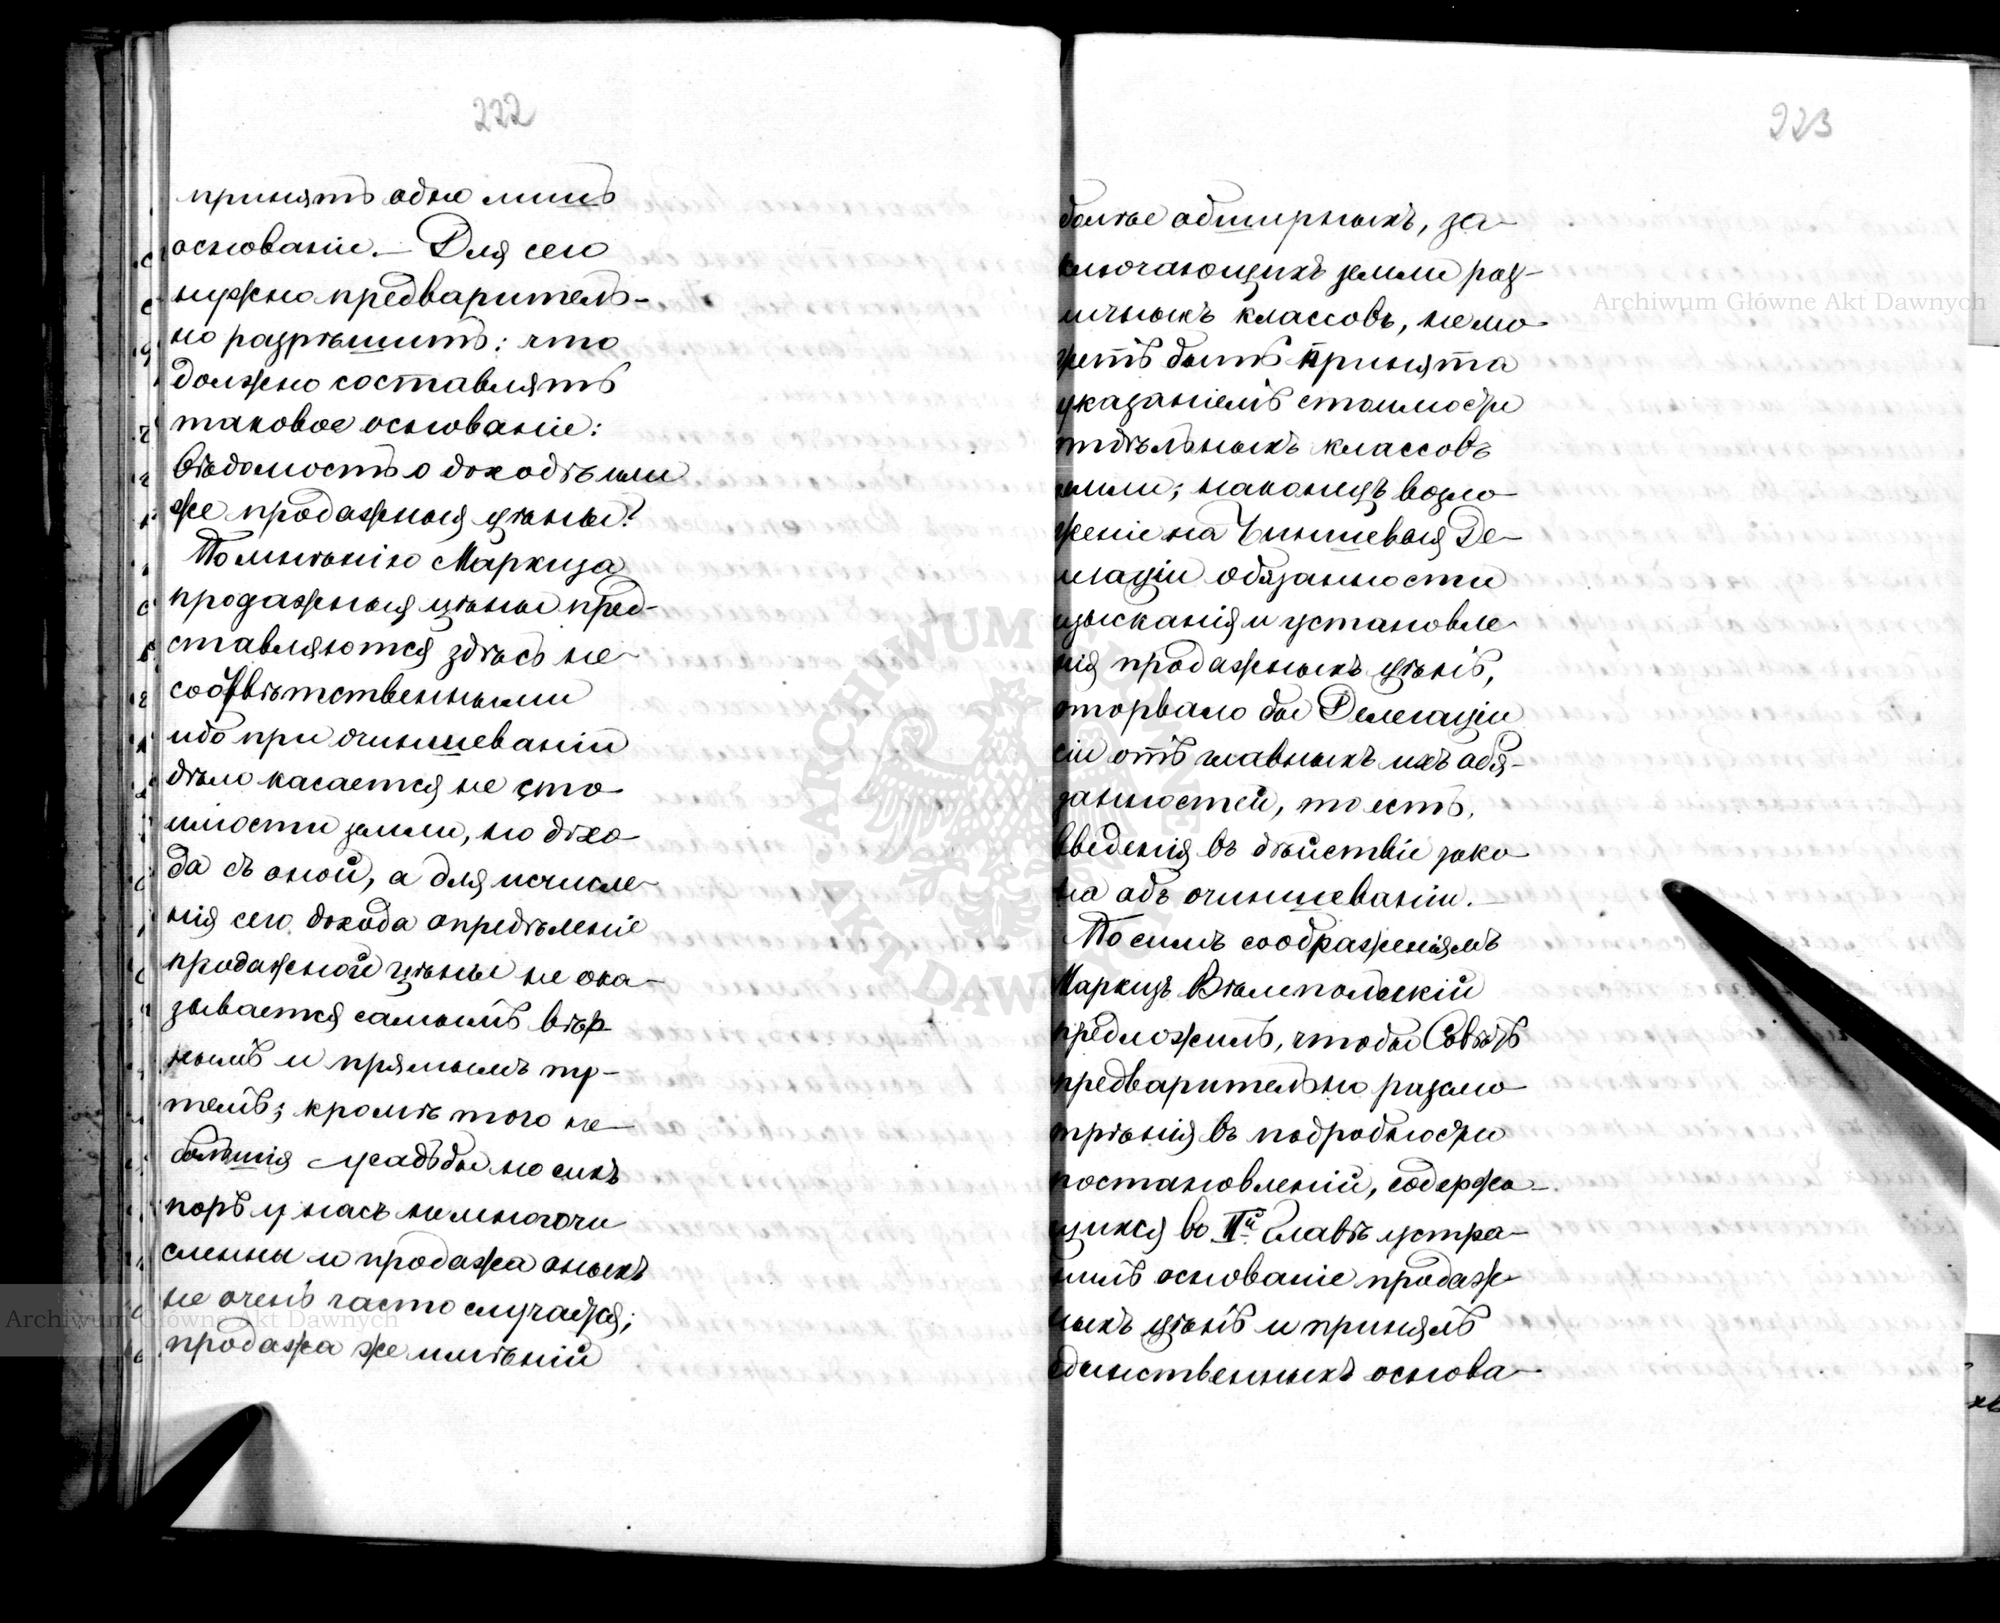 222
принять одно лишь
основаніе. — Для сего
нужно предваритель-
но разрѣшить: что
должно составлять
таковое основаніе:
вѣдомость о доходѣ или
же продажныя цѣны?
По мнѣнію Маркиза
продажныя цѣны пред-
ставляются здѣсь не-
соотвѣтственными
ибо при очиншеваніи
дѣло касается не сто-
имости земли, но дохо-
да съ оной, а для исчисле-
нія сего дохода опредѣленіе
продажной цѣны не ока-
зывается самымъ вѣр-
нымъ и прямымъ пу-
темъ; кромѣ того не-
большія усадьбы по сихъ
поръ у насъ немногочи
сленны и продажа оныхъ
не очень часто случается;
продажа же имѣній
223
болѣе обширныхъ, за-
ключающихъ земли раз-
личныхъ классовъ, не мо-
жетъ быть принята
указаніемъ стоимости
отдѣльныхъ классовъ
земли; наконецъ возло-
женіе на Чиншевыя Де-
легаціи обязанности
изысканія и установле-
нія продажныхъ цѣнъ,
оторвало бы Делегаціи
сіи отъ главныхъ ихъ обя-
занностей, то есть,
введенія въ дѣйствіе зако-
на объ очиншеваніи. —
По симъ соображеніямъ
Маркизъ Вѣлепольскій
предложилъ, чтобы Совѣтъ
предварительно разсмо-
трѣнія въ подробности
постановленій, содержа-
щихся во IIй Главѣ устра-
нилъ основаніе продаж-
ныхъ цѣнъ и принялъ
единственныхъ основа-
Archiwum Główne Akt Dawnych
Archiwum Główne Akt Dawnych
ARCHIWUM GŁÓWNE AKT DAWNYCH